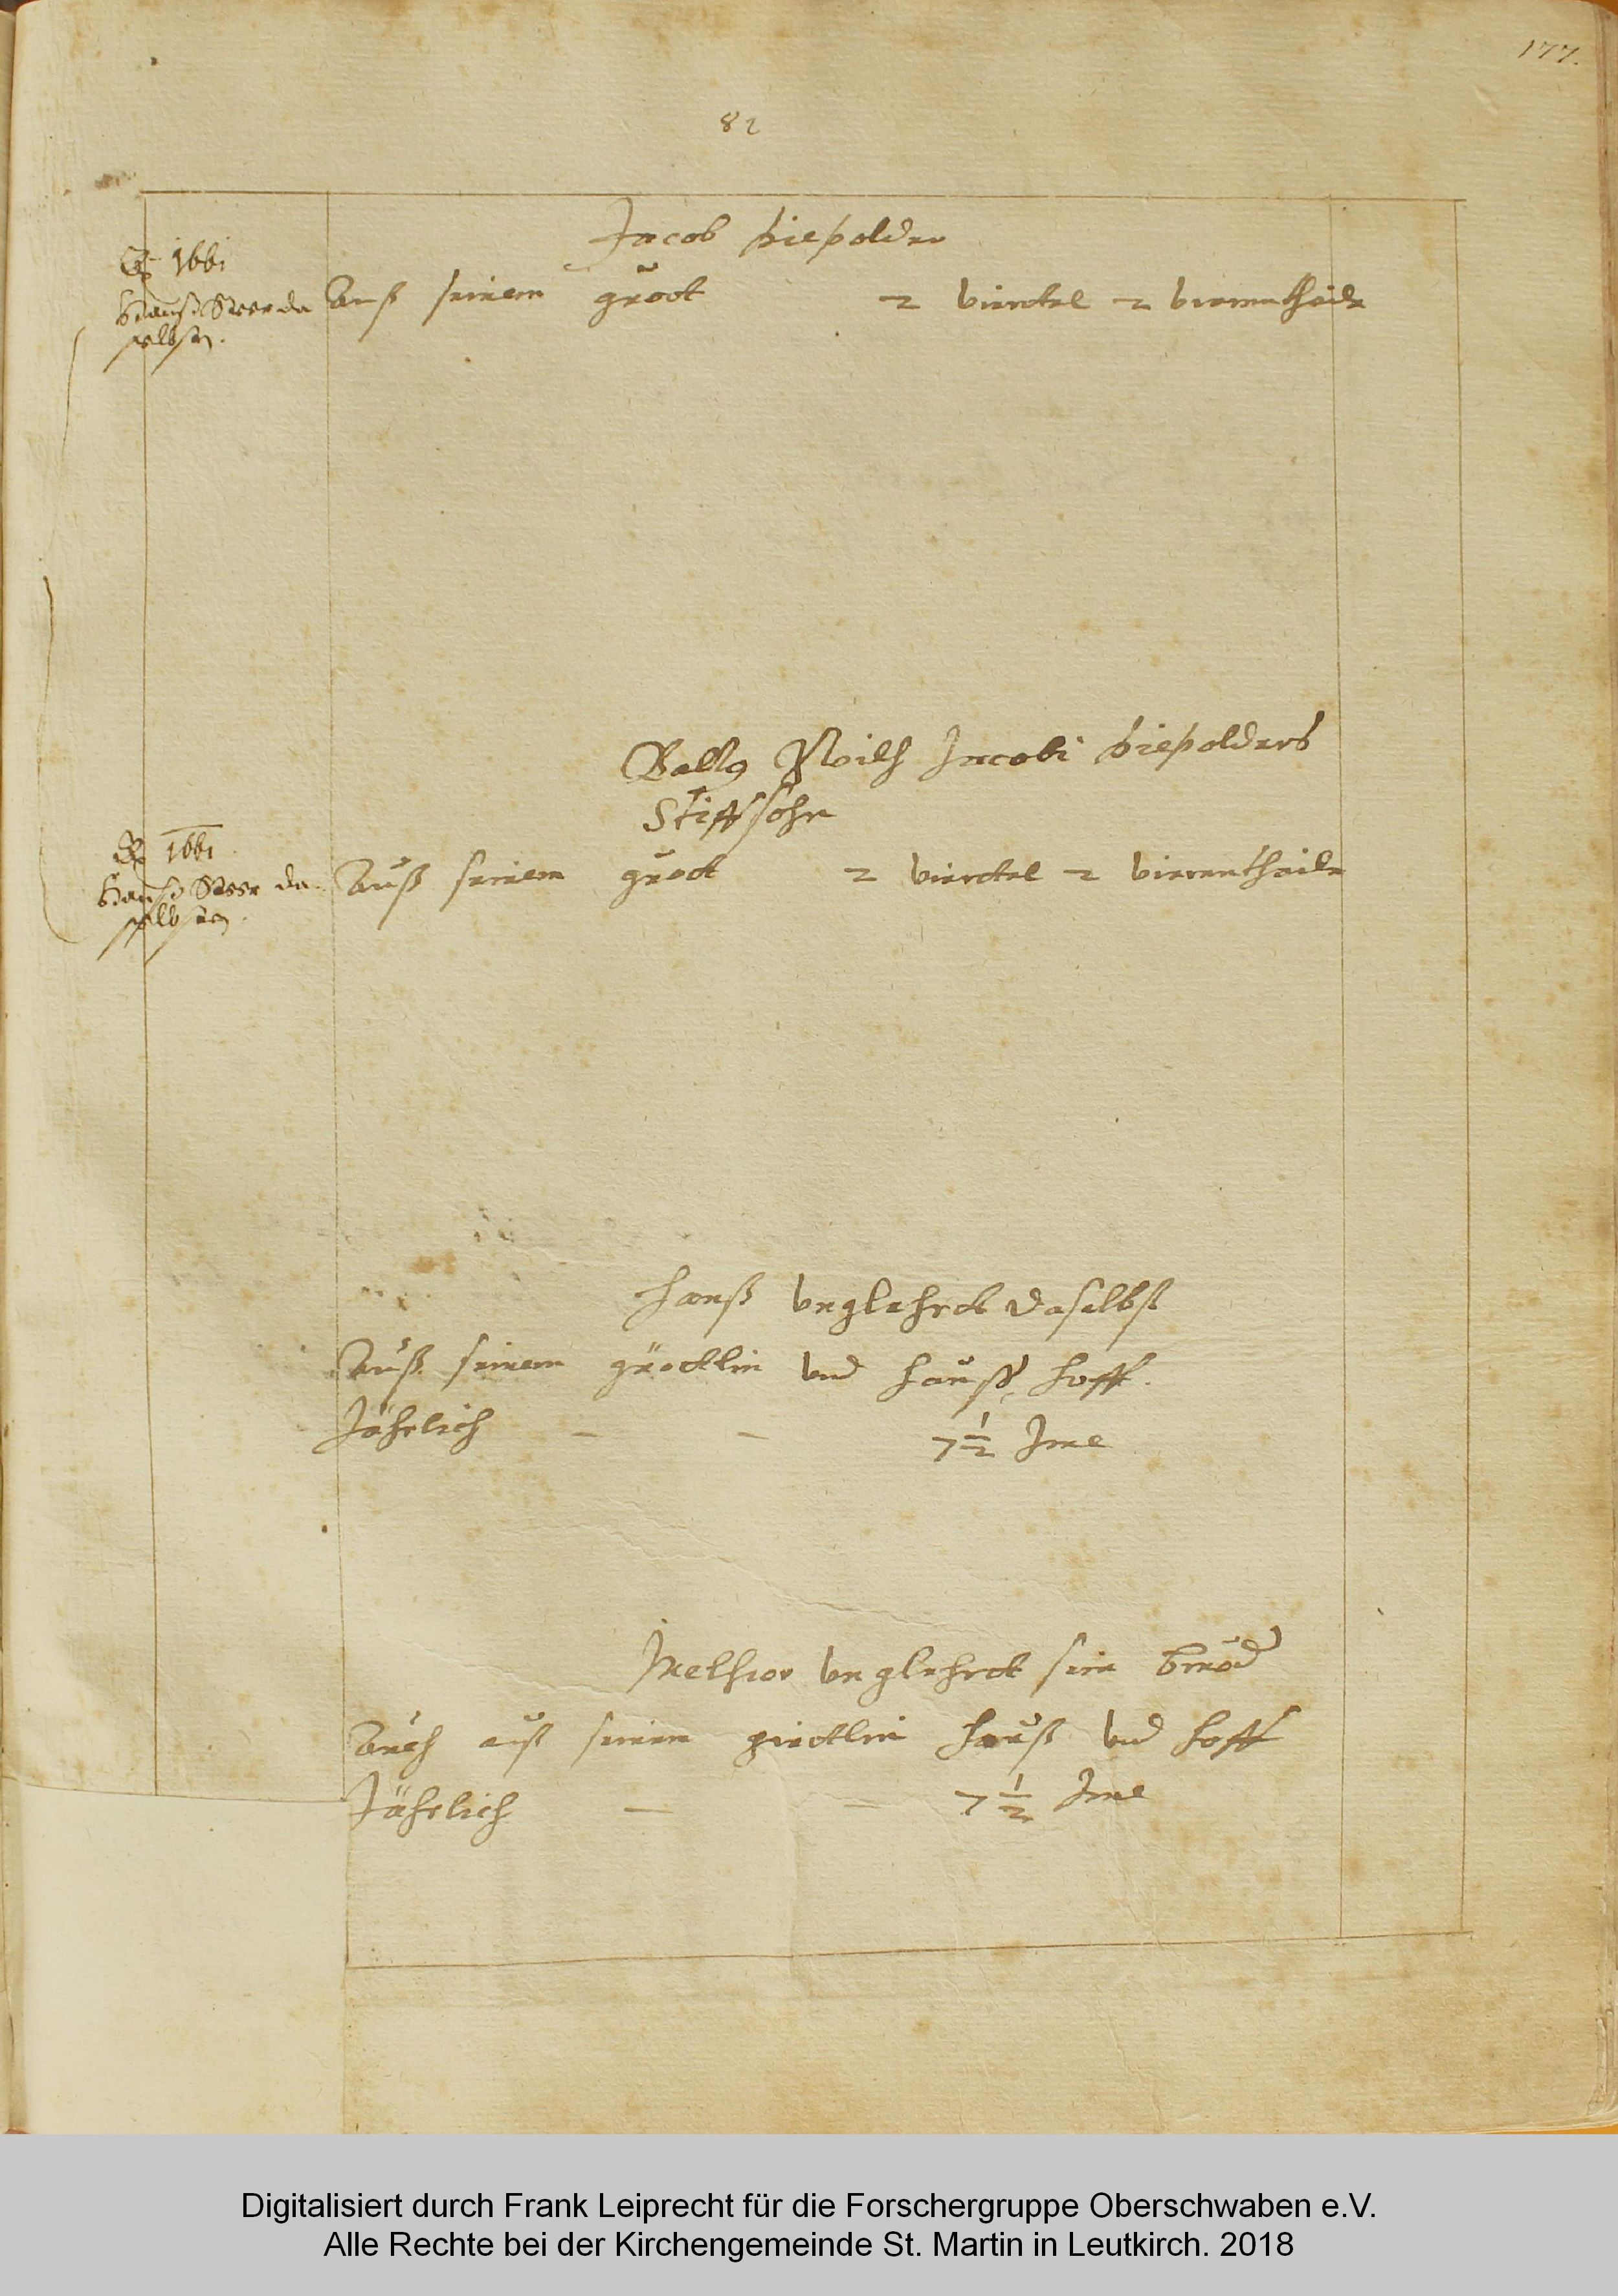 177.
82
Jacob diepolder
1661
Hanß Steer da
selbsten.
Auß seinem guot 2 viertel 2 vierentheile
Gallg Jacobi diepolders
Stiffsohn
1661
Hanß Steer da
selbsten.
Auß seinem guot 2 viertel 2 vierentheile
Hanß Unglehrdt daselbst
Auß seinem güetlin und hauß, hoff.
Jährlich – – 7 1/2 Ime
Melhior Unglehrdt sein bruod
Auch auß seinem güettlin hauß und hoff
Jährlich – – 7 1/2 Ime
Digitalisiert durch Frank Leiprecht für die Forschergruppe Oberschwaben e.V.
Alle Rechte bei der Kirchengemeinde St. Martin in Leutkirch. 2018